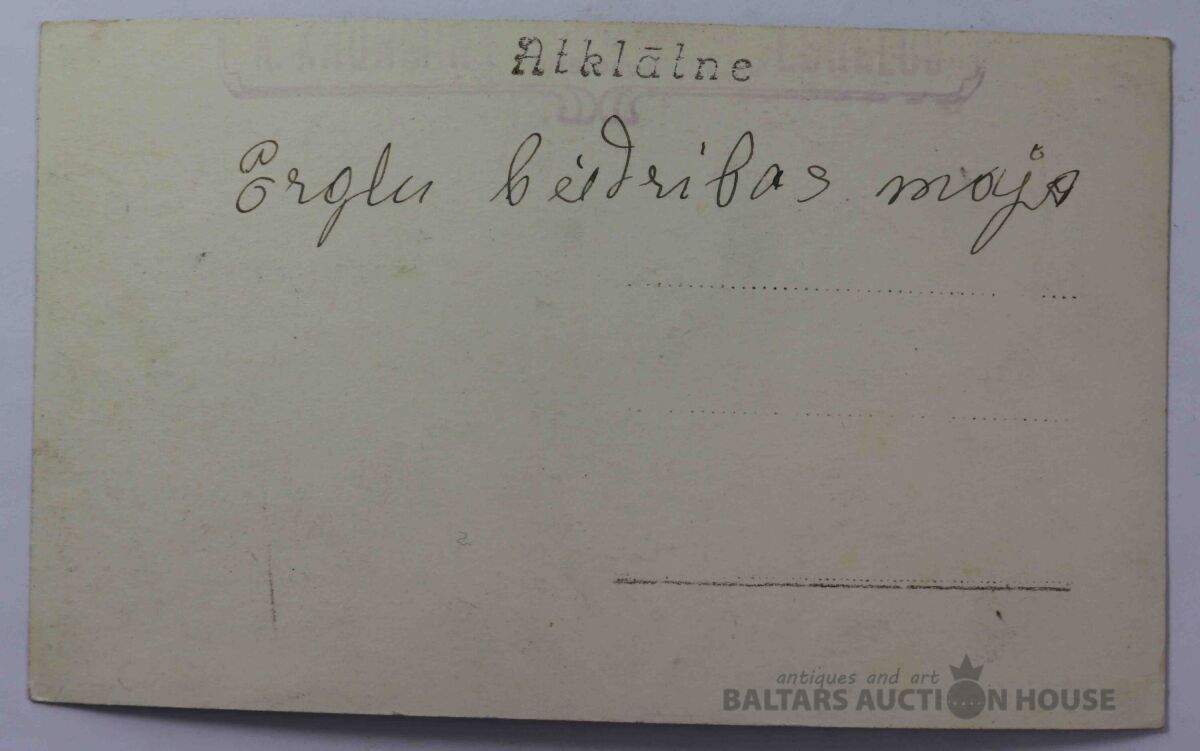 Atklātne
Ērgļu biedribas maja
antiques and art
BALTARS AUCTION HOUSE